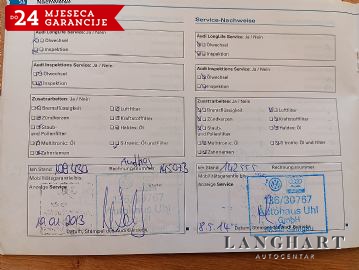 do 24 MJESECA
GARANCIJE
Nachweise
Service-Nachweise
Audi LongLife Service: Ja / Nein
Ölwechsel
Inspektion
Audi Inspektions Service: Ja / Nein
Ölwechsel
Inspektion
Zusatzarbeiten: Ja / Nein
Bremsflüssigkeit
Luftfilter
Zündkerzen
Kraftstofffilter
Staub-
und Pollenfilter
Haldex: Öl
Multitronic: Öl
S tronic: Öl und Filter
Zahnriemen
km Stand
Rechnungsnummer
Mobilitätsgarantie bis
Anzeige Service
19.01.2013
Datum, Stempel des Audi Betriebs
Audi LongLife Service: Ja / Nein
Ölwechsel
Inspektion
Audi Inspektions Service: Ja / Nein
Ölwechsel
Inspektion
Zusatzarbeiten: Ja / Nein
Bremsflüssigkeit
Luftfilter
Zündkerzen
Kraftstofffilter
Staub-
und Pollenfilter
Haldex: Öl
Multitronic: Öl
S tronic: Öl und Filter
Zahnriemen
km Stand
Rechnungsnummer
Mobilitätsgarantie bis
Anzeige Service
186/30767
Autohaus Uhl
GmbH
8.5.14
LANGHART
AUTOCENTAR